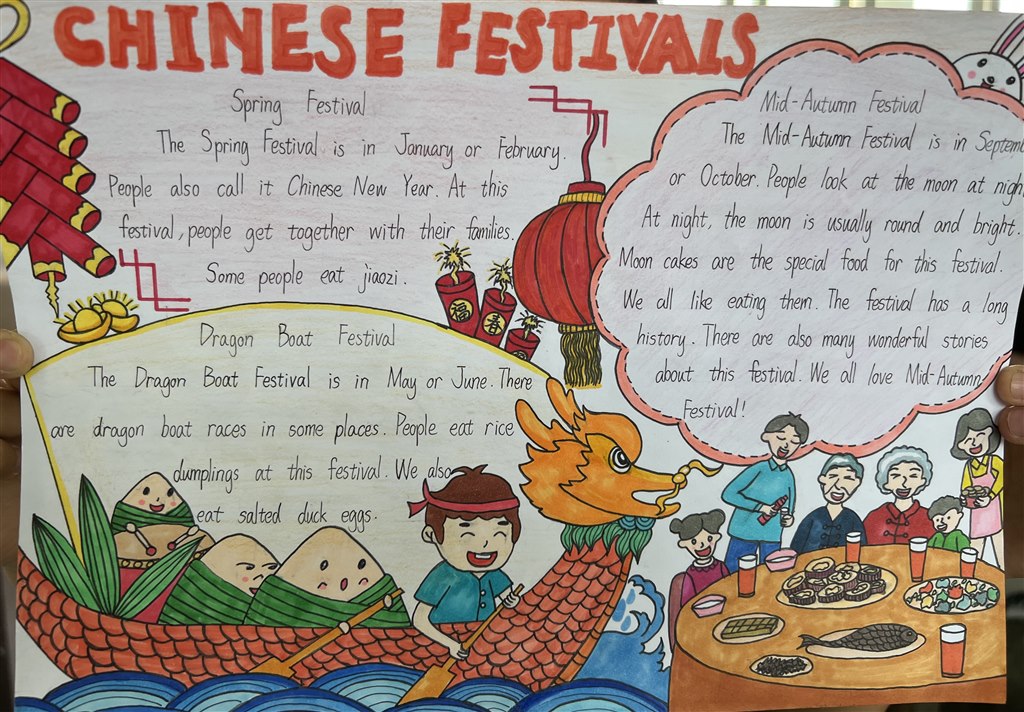 CHINESE FESTIVALS
Spring Festival
The Spring Festival is in January or February.
People also call it Chinese New Year. At this
festival, people get together with their families.
Some people eat jiaozi.
福
春
Dragon Boat Festival
The Dragon Boat Festival is in May or June. There
are dragon boat races in some places. People eat rice
dumplings at this festival. We also
eat salted duck eggs.
Mid-Autumn Festival
The Mid-Autumn Festival is in Septem
or October. People look at the moon at nigh
At night, the moon is usually round and bright.
Moon cakes are the special food for this festival.
We all like eating them. The festival has a long
history. There are also many wonderful stories
about this festival. We all love Mid-Autumn
Festival!